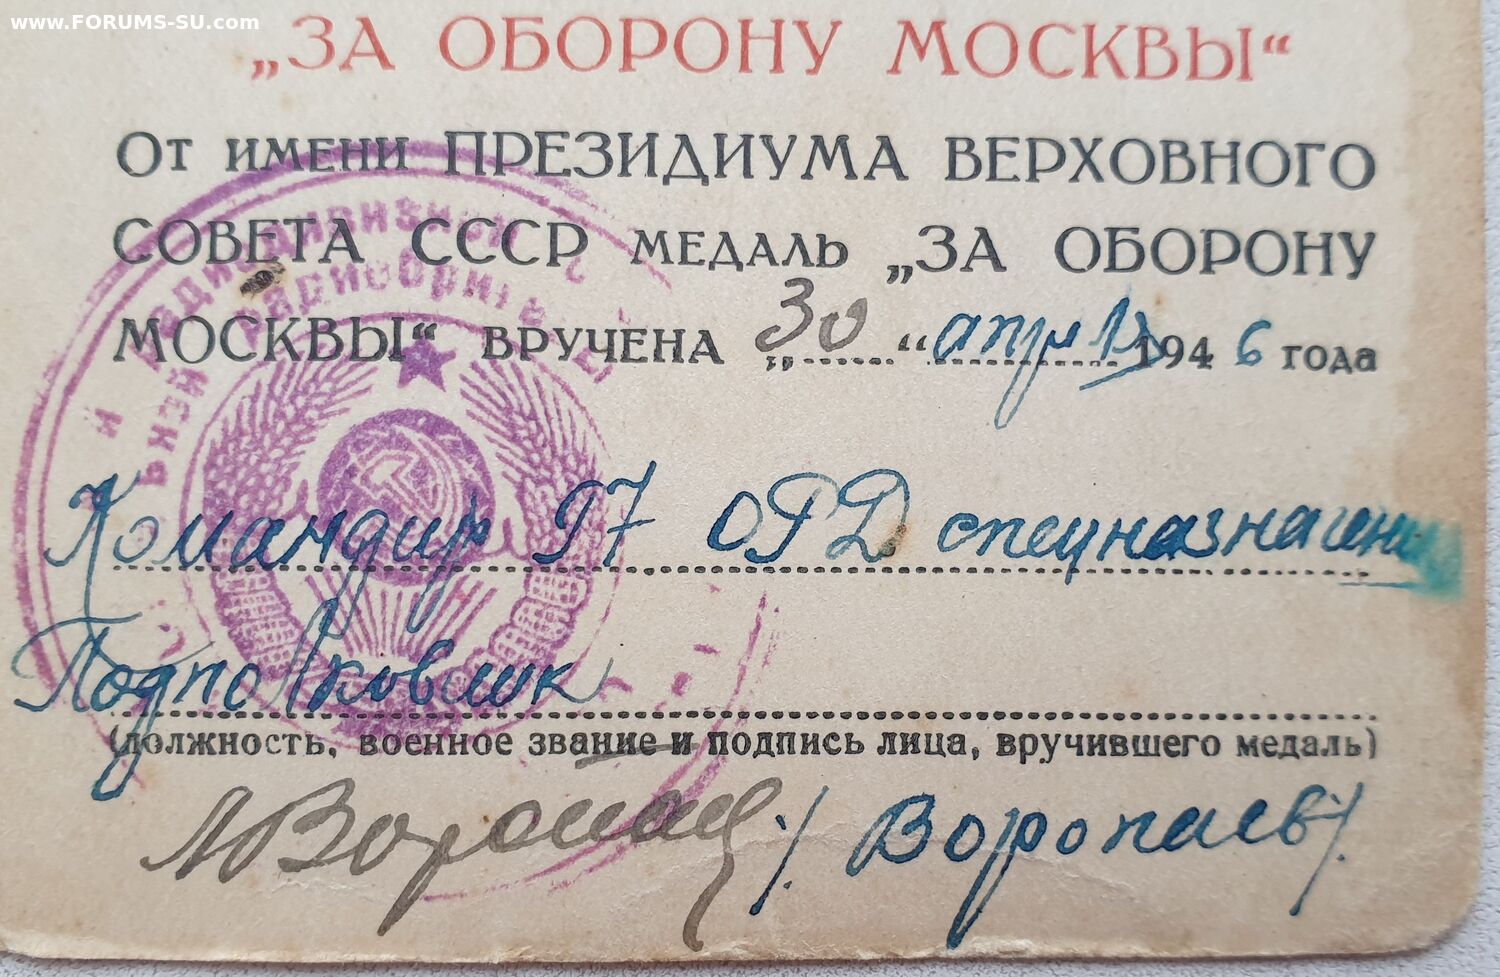 www.FORUMS-SU.com
„ЗА ОБОРОНУ МОСКВЫ“
От имени ПРЕЗИДИУМА ВЕРХОВНОГО
СОВЕТА СССР МЕДАЛЬ „ЗА ОБОРОНУ
МОСКВЫ“ ВРУЧЕНА „30“ апреля 1946 года
Командир 97 ОРД спецназначения
Подполковник
(должность, военное звание и подпись лица, вручившего медаль)
/Воропаев/.